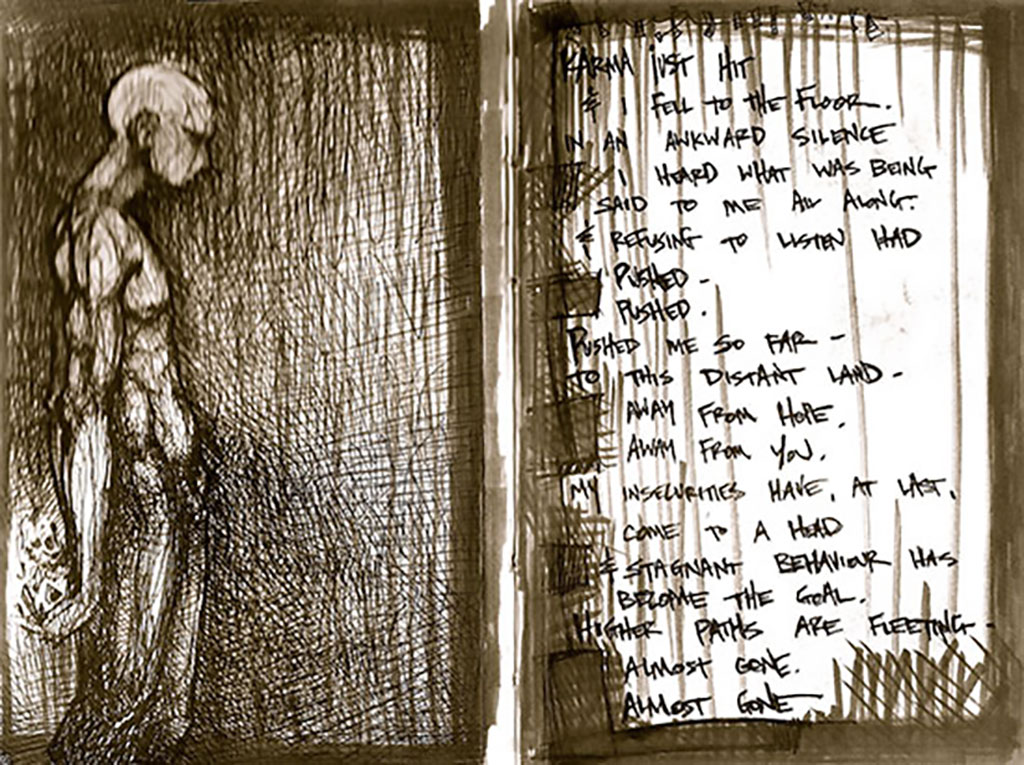 KARMA JUST HIT
& I FELL TO THE FLOOR.
IN AN AWKWARD SILENCE
I HEARD WHAT WAS BEING
SAID TO ME ALL ALONG.
& REFUSING TO LISTEN HAD
PUSHED -
PUSHED.
PUSHED ME SO FAR -
TO THIS DISTANT LAND -
AWAY FROM HOPE,
AWAY FROM YOU.
MY INSECURITIES HAVE, AT LAST,
COME TO A HEAD
& STAGNANT BEHAVIOUR HAS
BECOME THE GOAL.
HIGHER PATHS ARE FLEETING -
ALMOST GONE.
ALMOST GONE